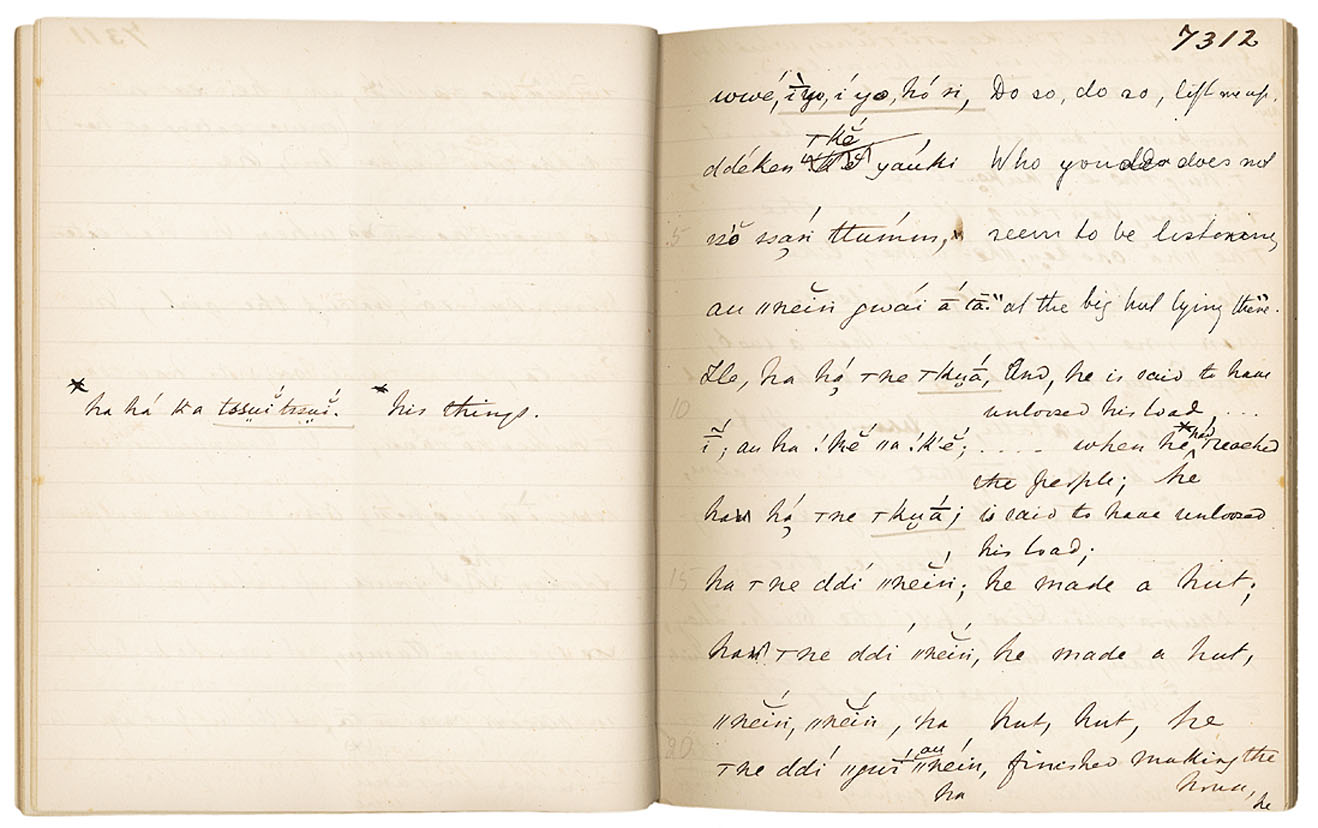 * ha há ka tssuĭ tssuĭ. * his things.
7312
wwé, í yo, í yo, hó si, Do so, do so, lift me up.
ǀkĕ́
ddéken yaúki Who you does not
5 ssả́n ttumm, seem to be listening
au ǁneĭn gwái ā́ tā̀." at the big hut lying there".
He, ha há̤ ǀne ǀku̱ā́, And, he is said to have
10 unloosed his load, ...
ĩ́; au ha !kĕ́ ǁa !k'ĕ́; .... when he * had reached
the people; he
há̤ ǀne ǀku̱ā́; is said to have unloosed
his load;
15 ha ǀne ddí ǁneĭn; he made a hut;
ha ǀne ddí ǁneĭn, he made a hut,
ǁneĭn, ǁneĭn, ha hut, hut, he
20 au
ǀne ddí ǁneĭn, finished making the
ha house, he